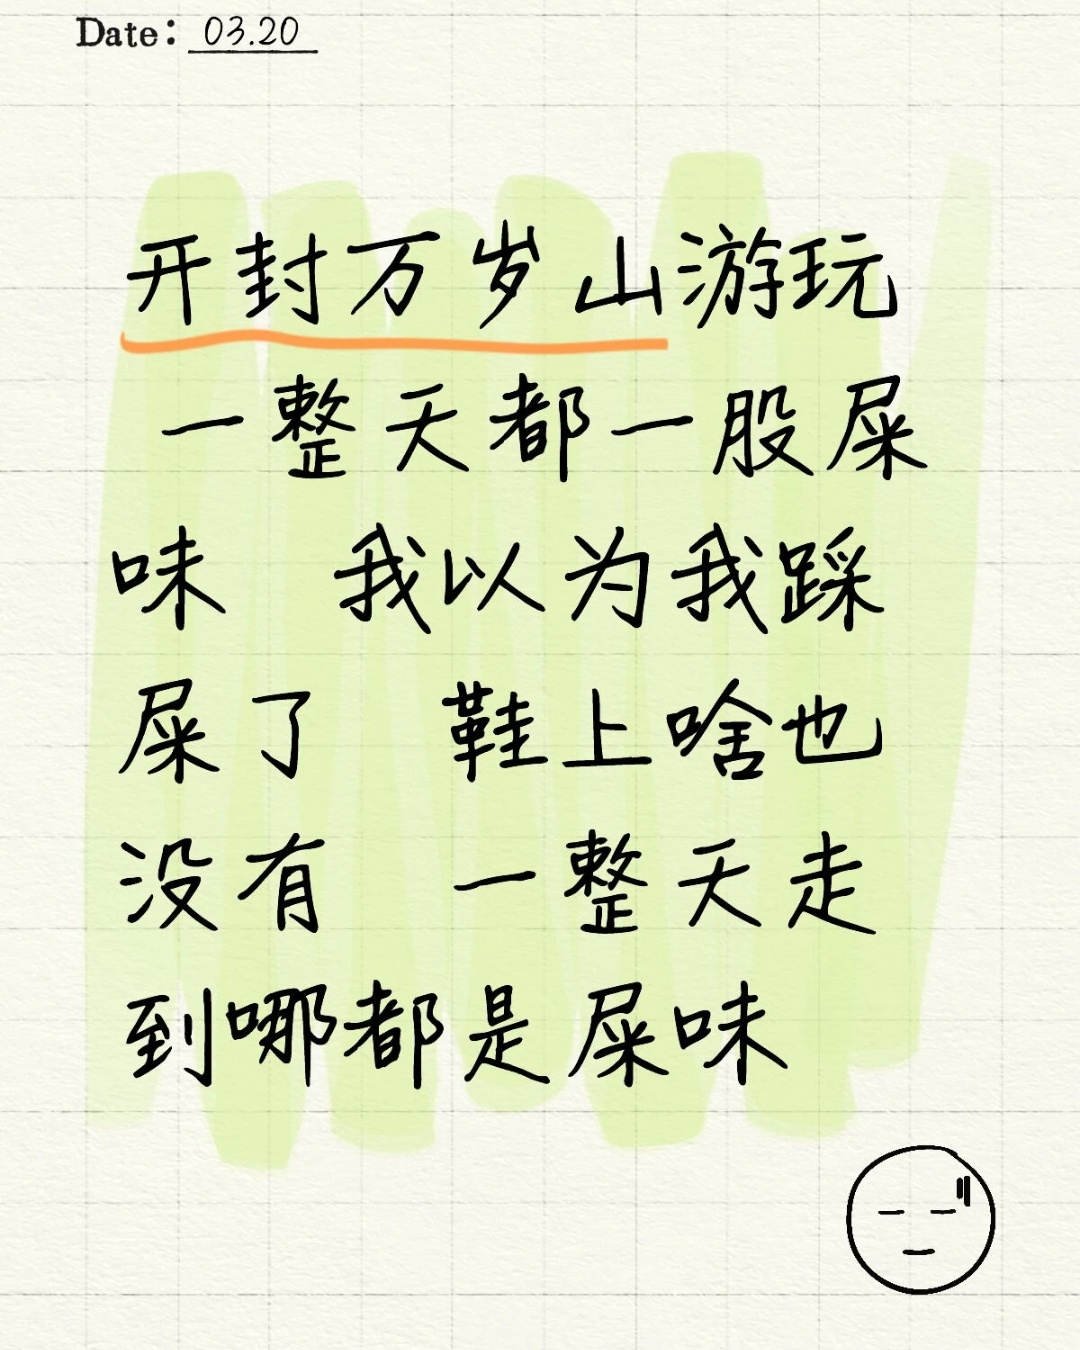 Date: 03.20
开封万岁山游玩
一整天都一股屎
味 我以为我踩
屎了 鞋上啥也
没有 一整天走
到哪都是屎味